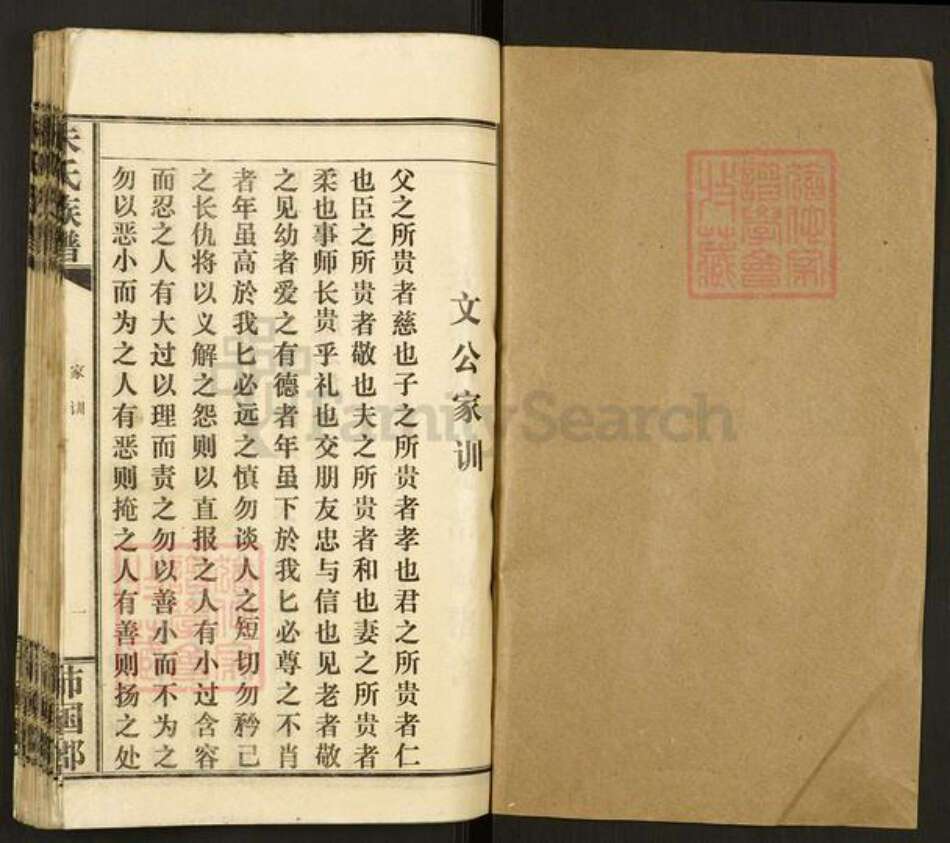 文公家训
父之所贵者慈也子之所贵者孝也君之所贵者仁
也臣之所贵者敬也夫之所贵者和也妻之所贵者
柔也事师长贵乎礼也交朋友忠与信也见老者敬
之见幼者爱之有德者年虽下於我匕必尊之不肖
者年虽高於我匕必远之慎勿谈人之短切勿矜己
之长仇将以义解之怨则以直报之人有小过含容
而忍之人有大过以理而责之勿以善小而不为之
勿以恶小而为之人有恶则掩之人有善则扬之处
朱氏族谱
家训
一
沛国郡
FamilySearch